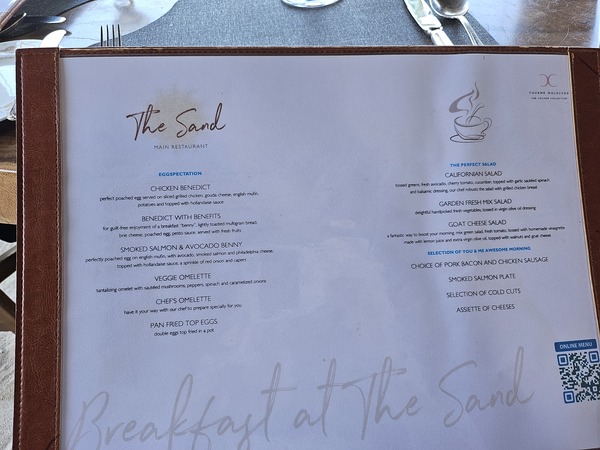 The Sand
MAIN RESTAURANT
EGGSPECTATION
CHICKEN BENEDICT
perfect poached egg served on sliced grilled chicken, gouda cheese, english muffin,
potatoes and topped with hollandaise sauce
BENEDICT WITH BENEFITS
for guilt-free enjoyment of a breakfast "benny", lightly toasted multigrain bread,
brie cheese, poached egg, pesto sauce, served with fresh fruits
SMOKED SALMON & AVOCADO BENNY
perfectly poached egg on english muffin, with avocado, smoked salmon and philadelphia cheese,
topped with hollandaise sauce, a sprinkle of red onion and capers
VEGGIE OMELETTE
tantalizing omelet with sautéed mushrooms, peppers, spinach and caramelized onions
CHEF'S OMELETTE
have it your way with our chef to prepare specially for you
PAN FRIED TOP EGGS
double eggs top fried in a pot
THE PERFECT SALAD
CALIFORNIAN SALAD
tossed greens, fresh avocado, cherry tomato, cucumber, topped with garlic sautéed spinach
and balsamic dressing, our chef robusts the salad with grilled chicken breast
GARDEN FRESH MIX SALAD
delightful handpicked fresh vegetables, tossed in virgin olive oil dressing
GOAT CHEESE SALAD
a fantastic way to boost your morning, mix green salad, fresh tomato, tossed with homemade vinaigrette
made with lemon juice and extra virgin olive oil, topped with walnuts and goat cheese
SELECTION OF YOU & ME AWESOME MORNING
CHOICE OF PORK BACON AND CHICKEN SAUSAGE
SMOKED SALMON PLATE
SELECTION OF COLD CUTS
ASSIETTE OF CHEESES
ONLINE MENU
Breakfast at The Sand